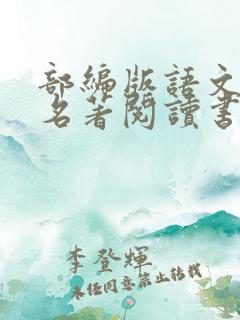 部編版語文
名著閱讀書
李登輝
未經同意禁止轉載